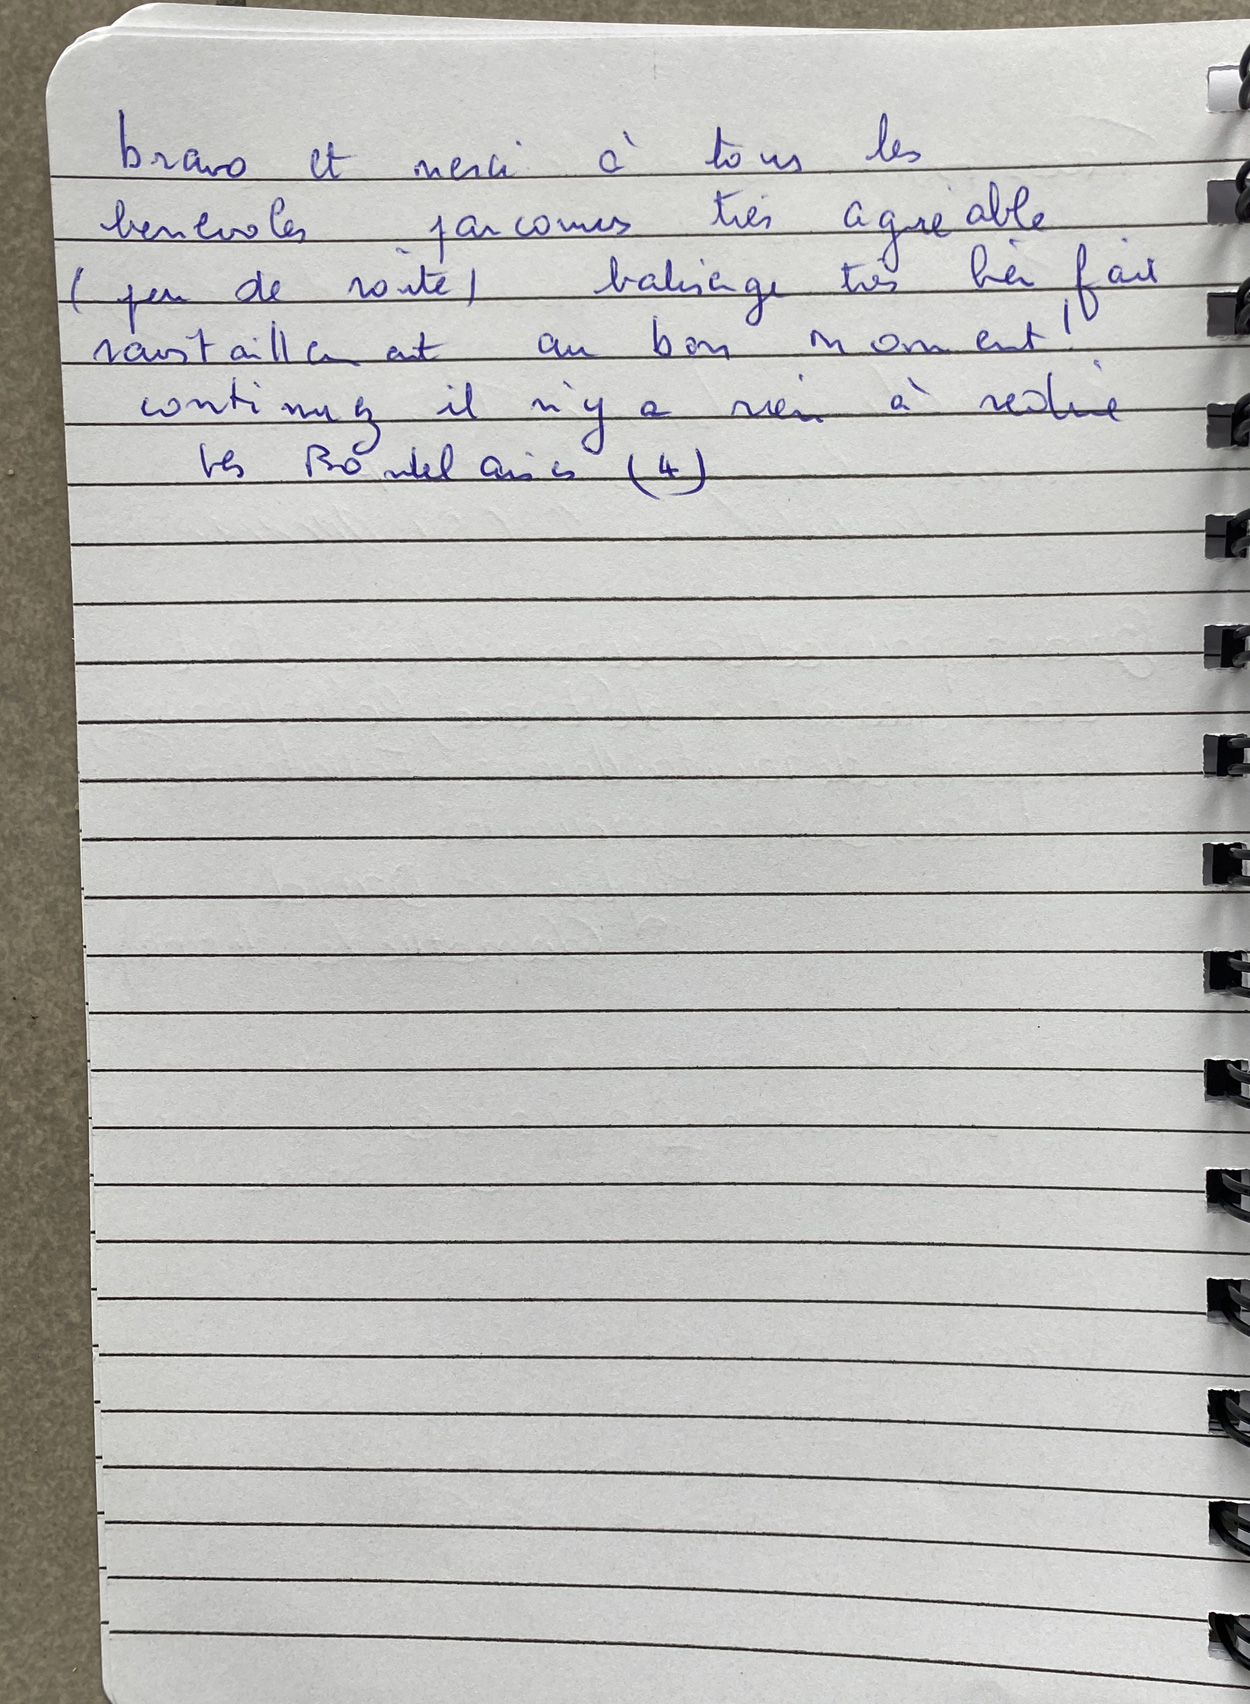 bravo et merci à tous les
benevoles parcours très agréable
(peu de route) balisage très bien fait
ravitaillement au bon moment !
continuez il n'y a rien à redire
les (4)